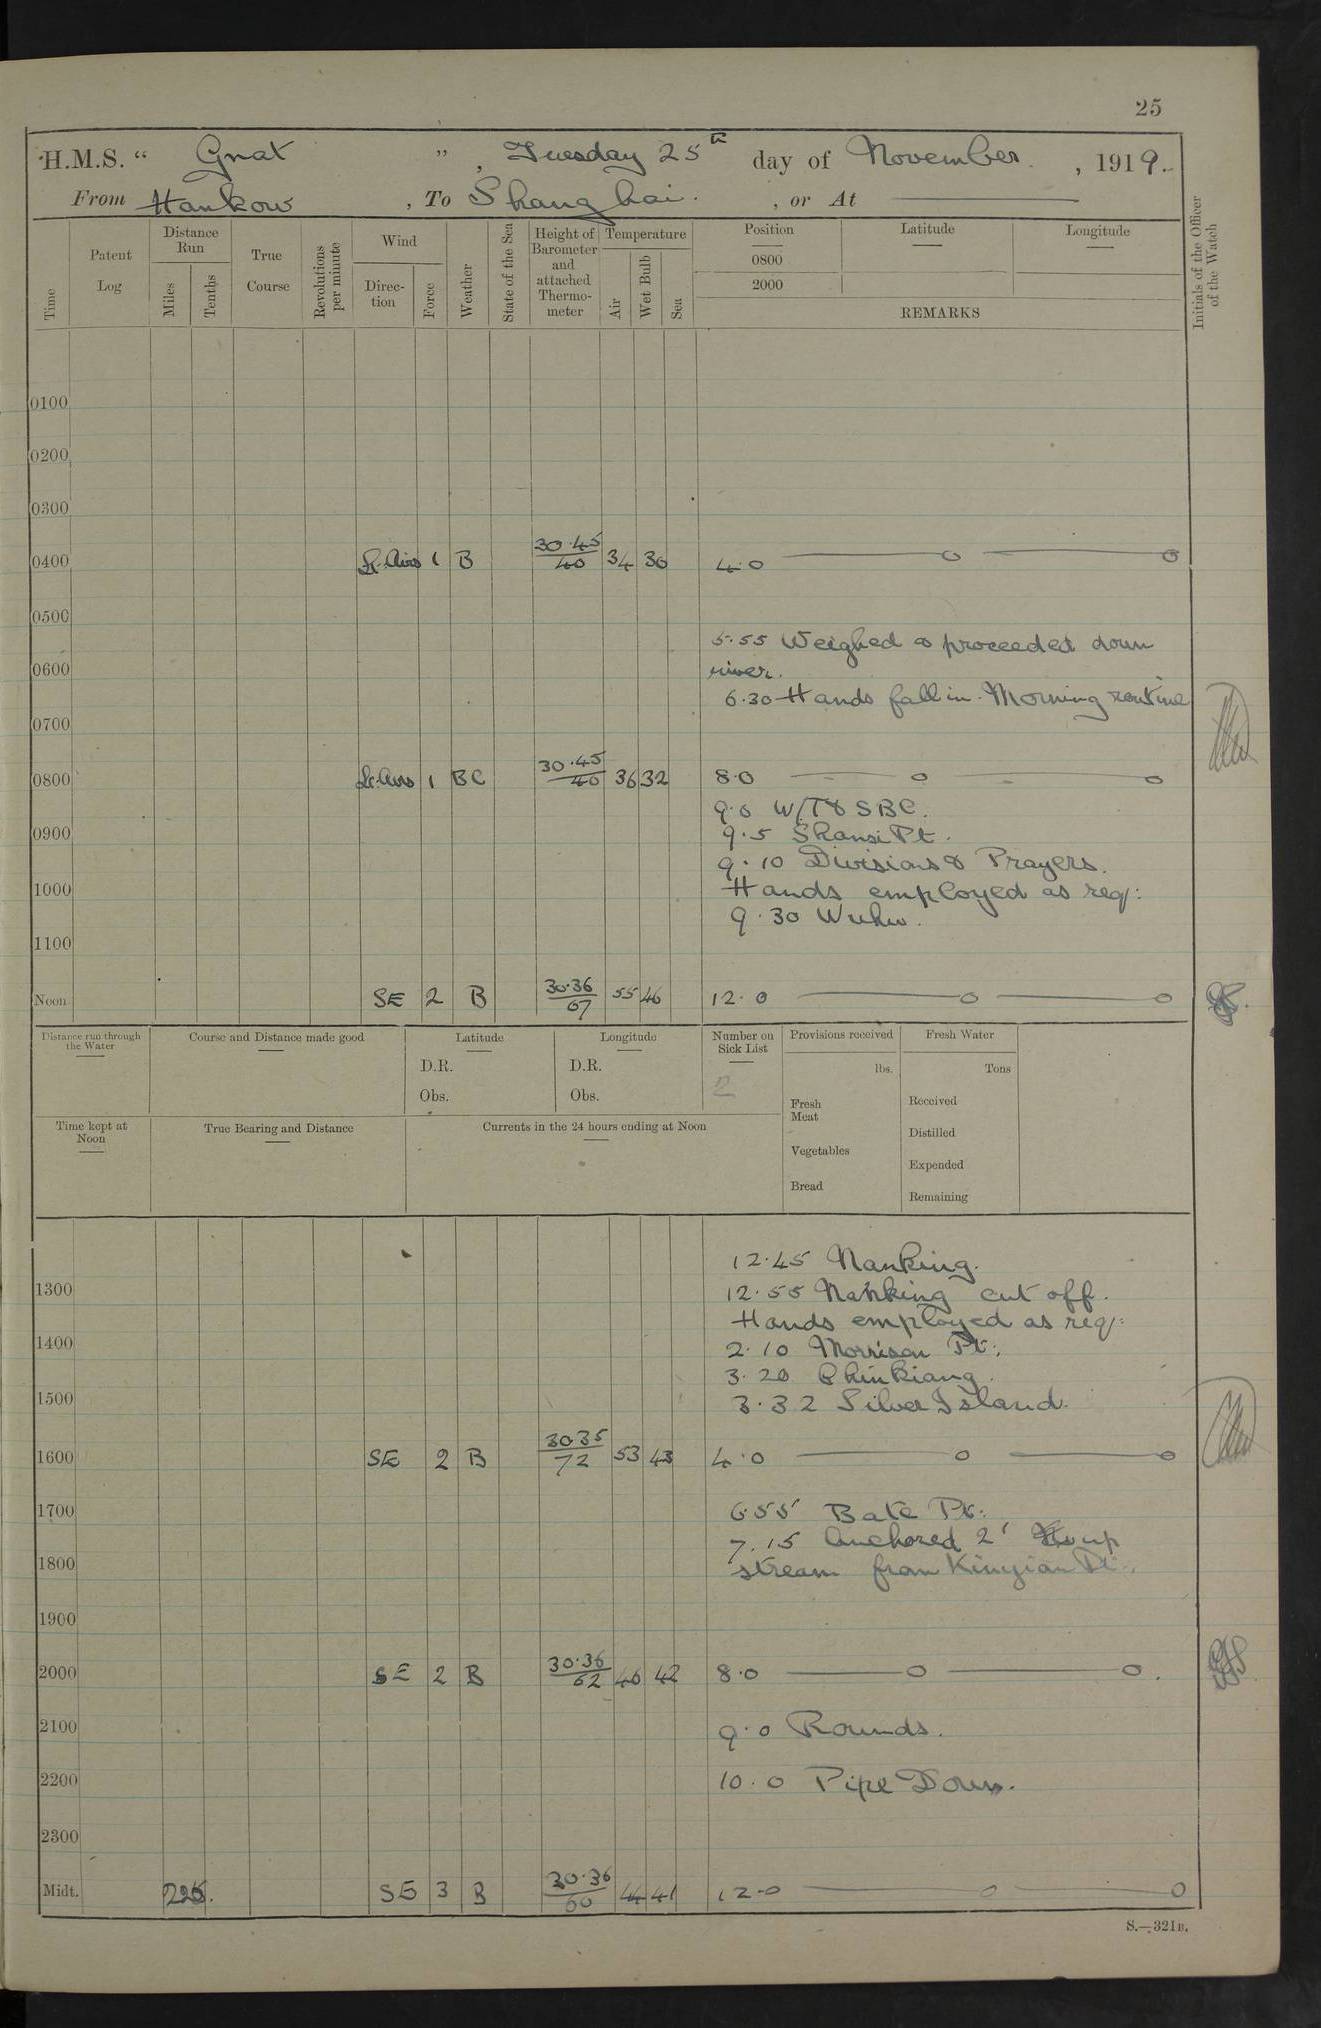 25
H.M.S. “ Gnat ” , Tuesday 25th day of November , 1919.
From Hankow , To Shanghai. , or At
Time
Patent Log
Distance Run
Miles
Tenths
True Course
Revolutions per minute
Wind
Direction
Force
Weather
State of the Sea
Height of Barometer and attached Thermometer
Temperature
Air
Wet Bulb
Sea
Position
0800
2000
Latitude
Longitude
REMARKS
Initials of the Officer of the Watch
0100
0200
0300
0400 Lt. Airs 1 B 30.45/40 34 30 4.0
0500
5.55 Weighed & proceeded down
0600
river.
6.30 Hands fall in. Morning routine
0700
0800 Lt. Airs 1 BC 30.45/40 36 32 8.0
9.0 W/T & SBC.
0900
9.5 Shansi Pt.
9.10 Divisions & Prayers.
1000
Hands employed as req:
9.30 Wuhu.
1100
Noon SE 2 B 30.36/67 55 46 12.0
Distance run through the Water
Course and Distance made good
Latitude
D.R.
Obs.
Longitude
D.R.
Obs.
Number on Sick List
2
Provisions received
lbs.
Fresh Meat
Vegetables
Bread
Fresh Water
Tons
Received
Distilled
Expended
Remaining
Time kept at Noon
True Bearing and Distance
Currents in the 24 hours ending at Noon
12.45 Nanking.
1300
12.55 Nanking cut off.
Hands employed as req:
1400
2.10 Morrison Pt:
3.20 Chinkiang.
1500
3.32 Silver Island.
1600 SE 2 B 30.35/72 53 43 4.0
1700
6.55 Bate Pt:
7.15 Anchored 2' up
1800
stream from Kinyian Pt:
1900
2000 SE 2 B 30.36/62 46 42 8.0
2100
9.0 Rounds.
2200
10.0 Pipe Down.
2300
Midt. 225. SE 3 B 30.36/60 44 41 12.0
S.—321B.